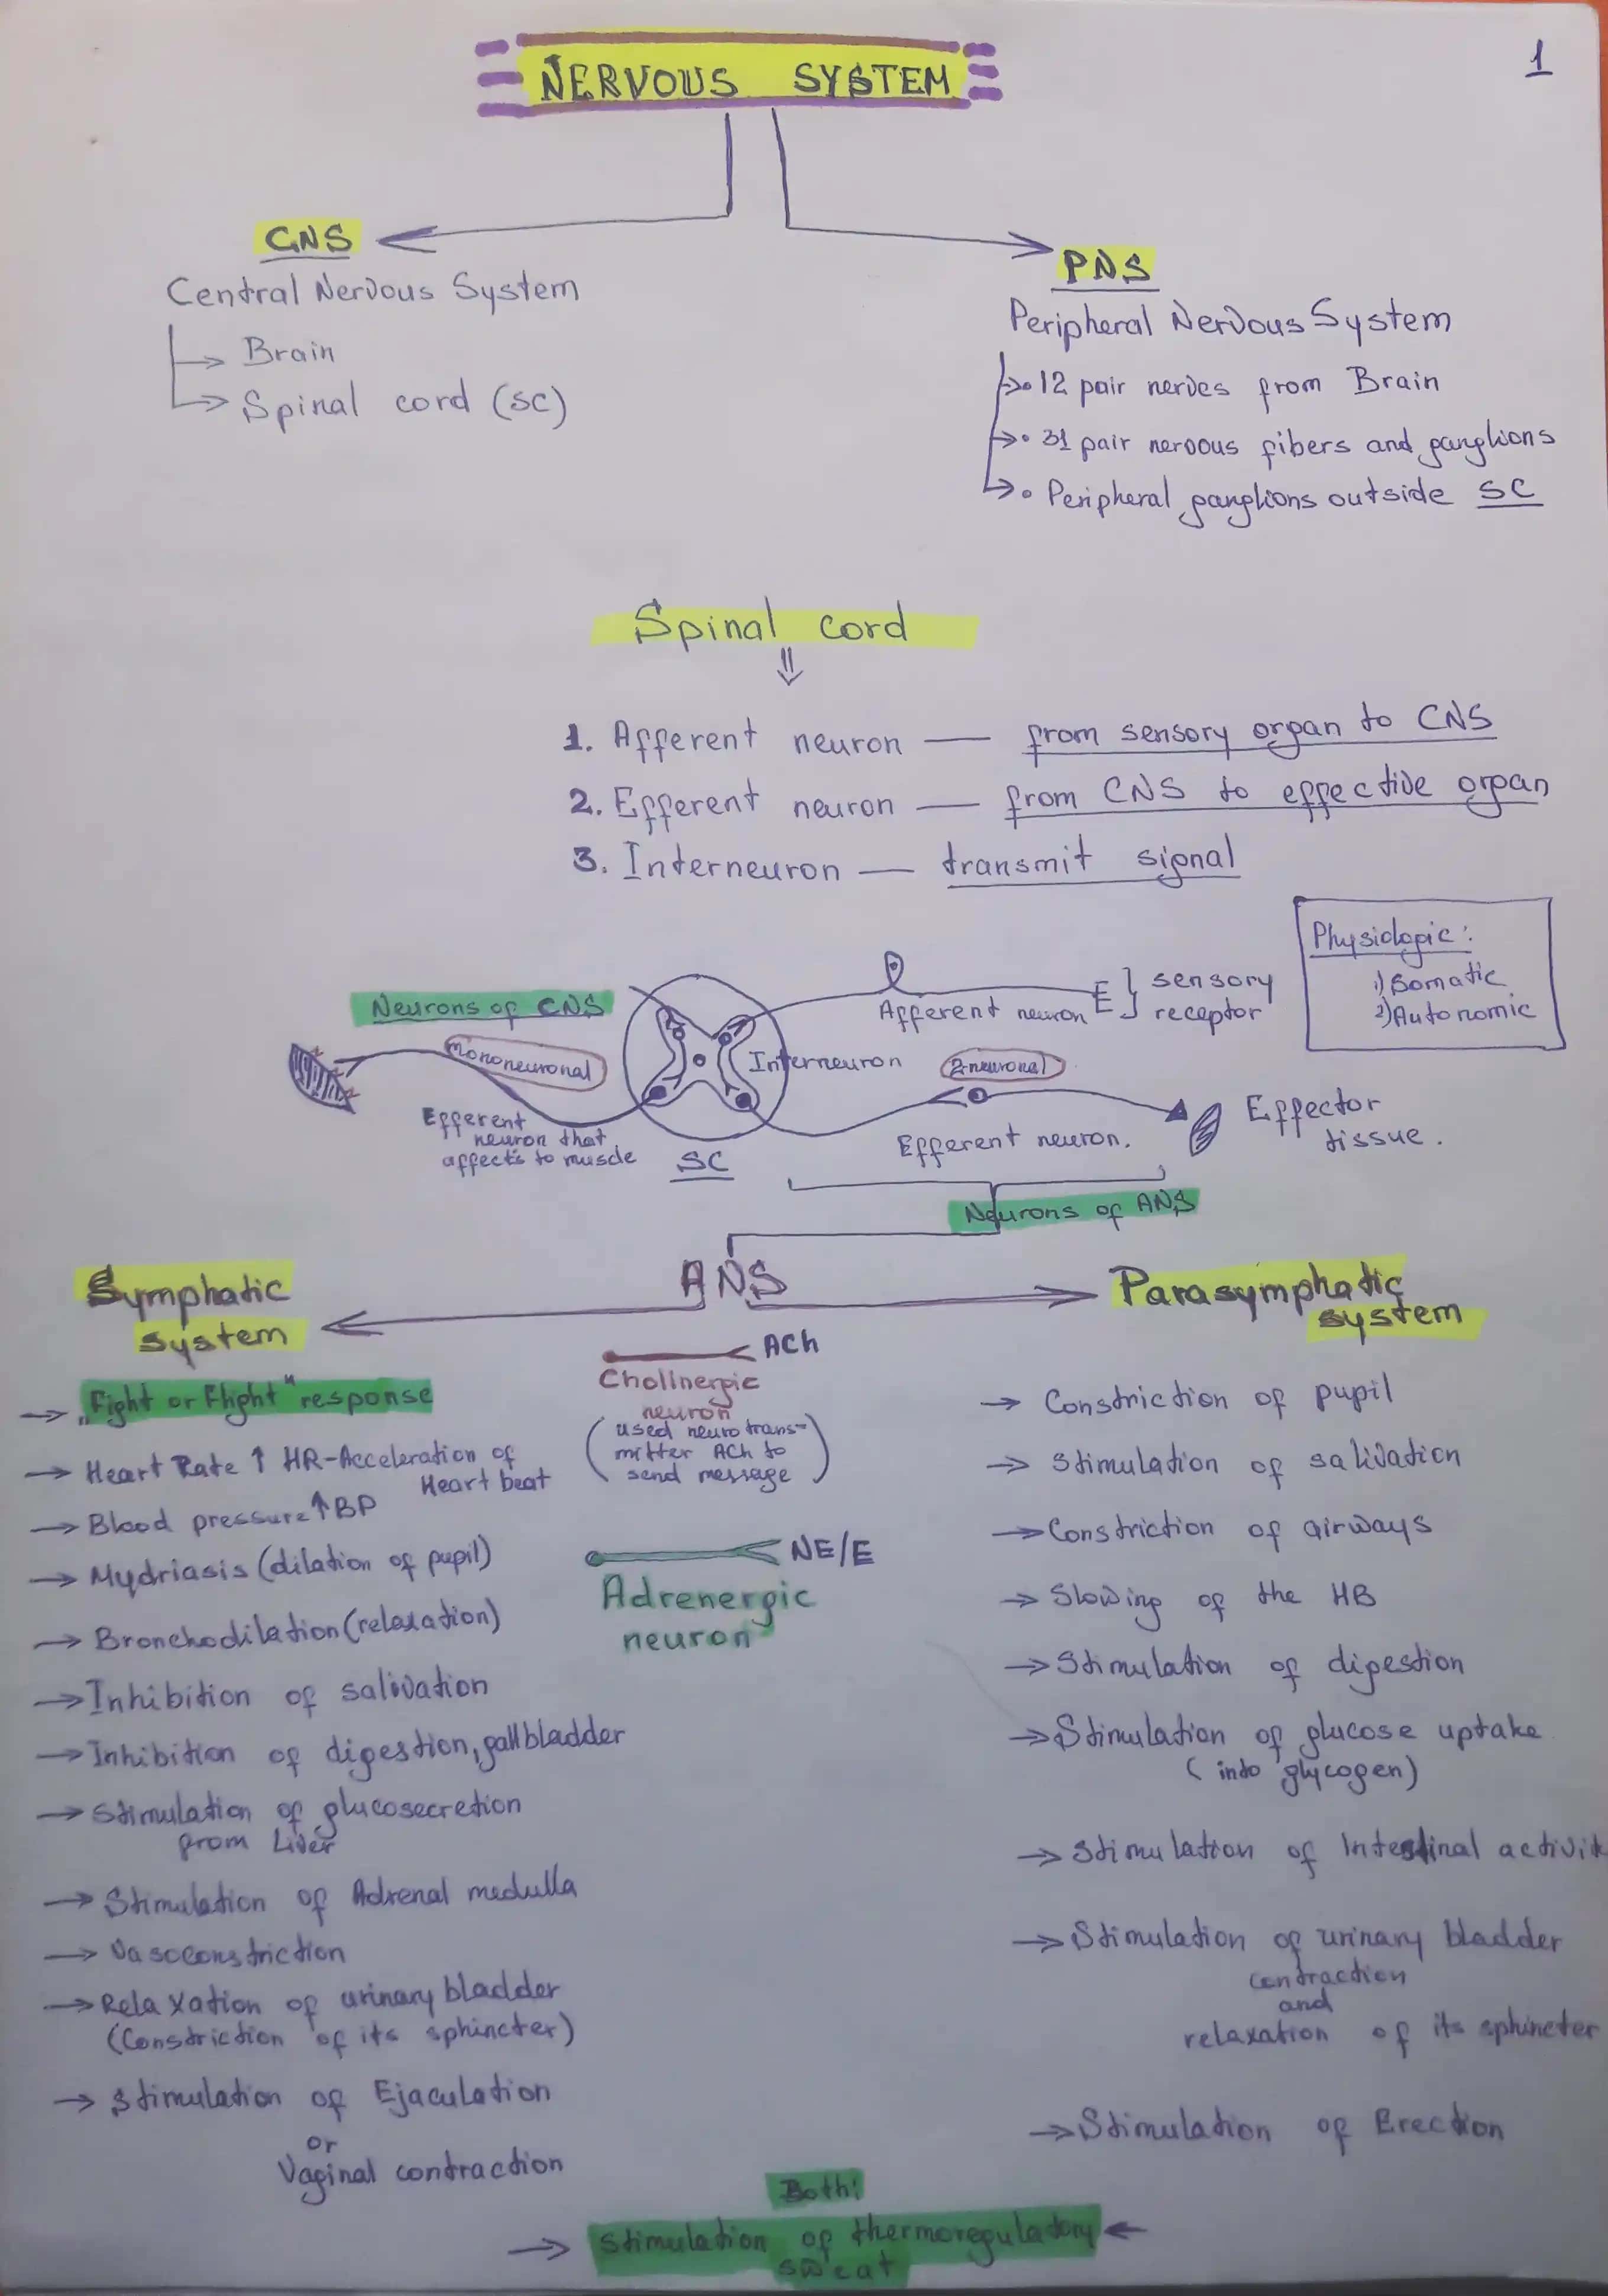 1
NERVOUS SYSTEM
CNS
Central Nervous System
Brain
Spinal cord (SC)
PNS
Peripheral Nervous System
12 pair nerves from Brain
31 pair nervous fibers and ganglions
Peripheral ganglions outside SC
Spinal cord
1. Afferent neuron — from sensory organ to CNS
2. Efferent neuron — from CNS to effective organ
3. Interneuron — transmit signal
Physiologic:
1) Somatic
2) Autonomic
Neurons of CNS
mononeuronal
Efferent
neuron that
affects to muscle
SC
Afferent neuron
sensory
receptor
Interneuron
2-neuronal
Efferent neuron.
Effector
tissue.
Neurons of ANS
ANS
Symphatic
system
→ „Fight or Flight" response
→ Heart Rate ↑ HR-Acceleration of
Heart beat
→ Blood pressure ↑ BP
→ Mydriasis (dilation of pupil)
→ Bronchodilation (relaxation)
→ Inhibition of salivation
→ Inhibition of digestion, gallbladder
→ Stimulation of glucosecretion
from Liver
→ Stimulation of Adrenal medulla
→ Vasoconstriction
→ Relaxation of urinary bladder
(Constriction of its sphincter)
→ Stimulation of Ejaculation
or
Vaginal contraction
ACh
Cholinergic
neuron
(used neurotrans-
mitter ACh to
send message)
NE/E
Adrenergic
neuron
Parasymphatic
system
→ Constriction of pupil
→ Stimulation of salivation
→ Constriction of airways
→ Slowing of the HB
→ Stimulation of digestion
→ Stimulation of glucose uptake
(into glycogen)
→ Stimulation of Intestinal activit
→ Stimulation of urinary bladder
contraction
and
relaxation of its sphincter
→ Stimulation of Erection
Both:
→ Stimulation of thermoregulatory ←
sweat